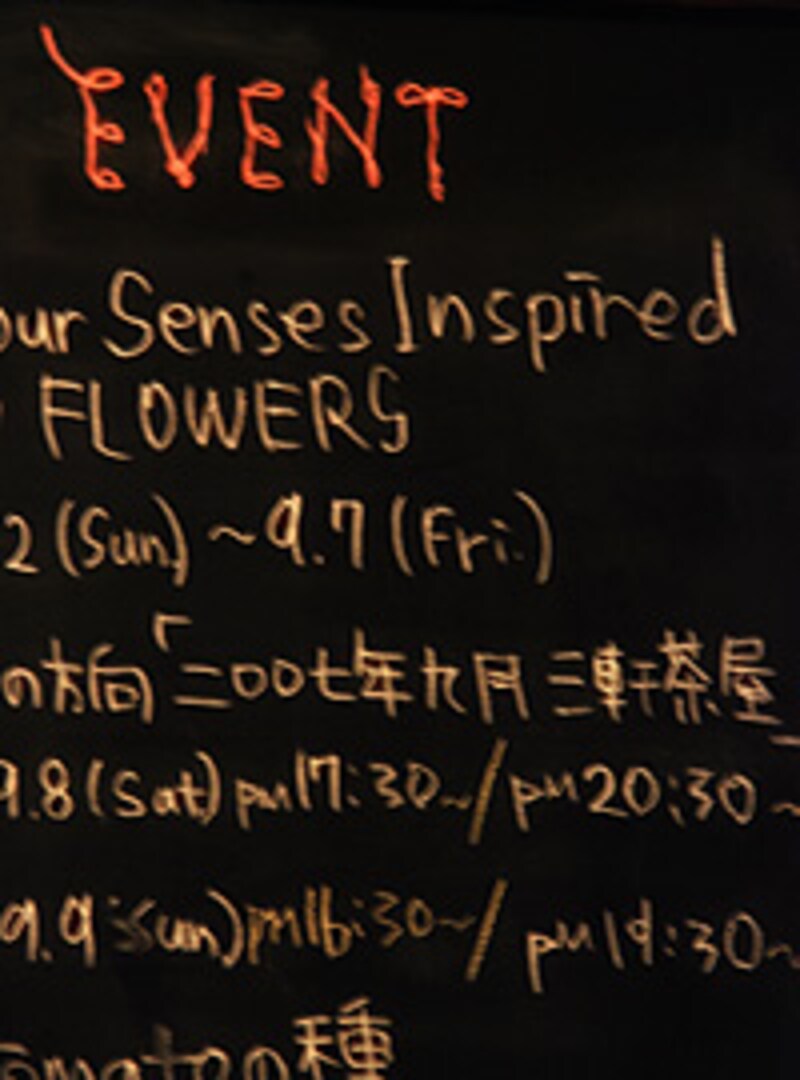 EVENT
our Senses Inspired
FLOWERS
2 (Sun.) ~ 9.7 (Fri.)
の方向「二〇〇七年九月 三軒茶屋」
9.8 (Sat) pm17:30~/pm20:30~
9.9 (Sun) pm16:30~/pm19:30~
omatoの種